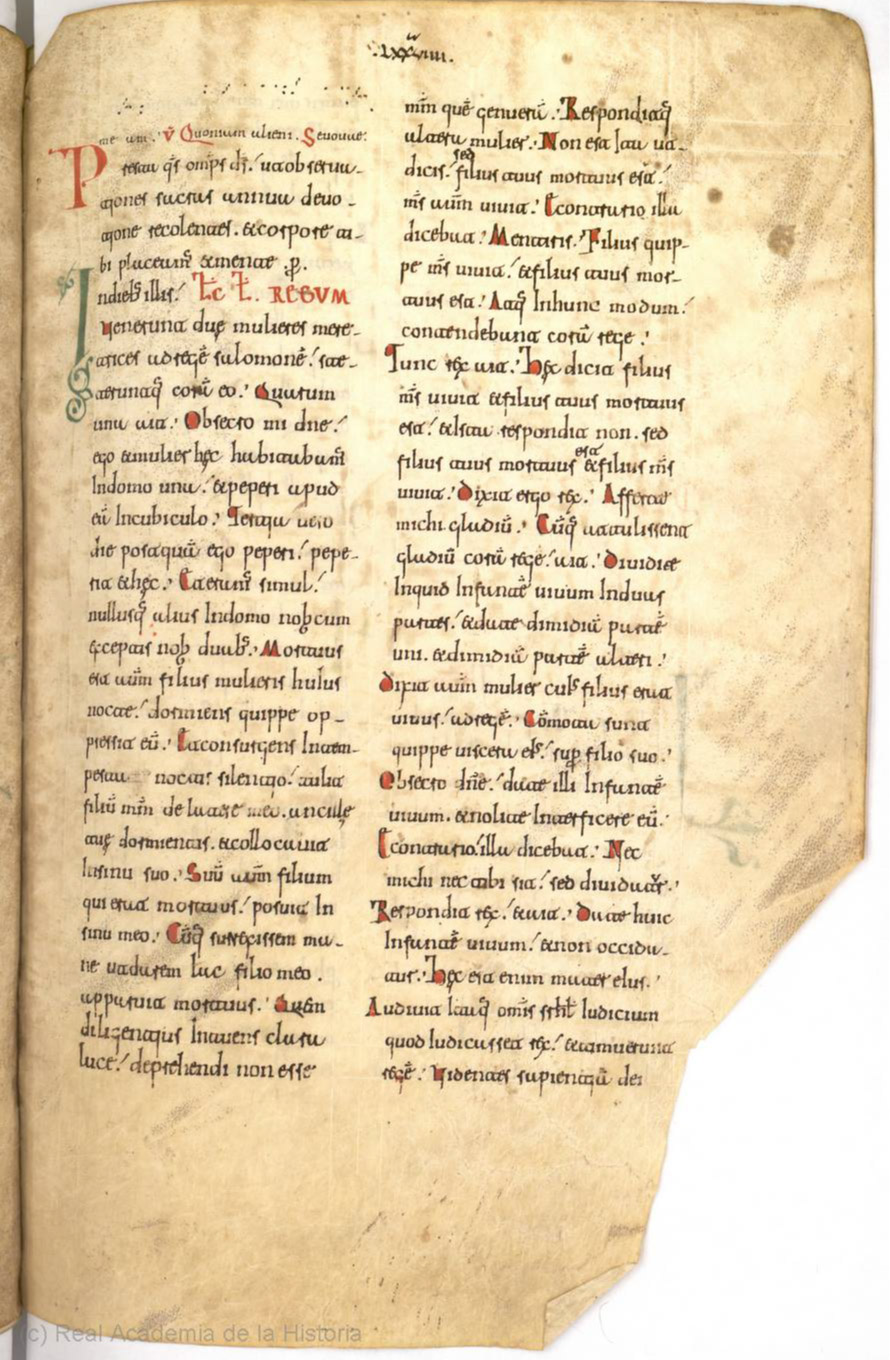 .lxxxuiiii.
me um. v Quonium alieni. Seuouae.
Presta qs omps ds. ut obserua-
tiones sacras annua deuo-
tione recolentes. et corpore ti-
bi placeam et mente p.
In dieb; illis. Lc L. REGVM
Venerunt duę mulieres mere-
trices ad regē salomonē. ste-
teruntq; corā eo. Quarum
una ait. Obsecro mi dne.
ego et mulier hęc habitabam
In domo una. et peperi apud
eā In cubiculo. Tertia uero
die postquā ego peperi. pepe-
rit et hęc. Et eram simul.
nullusq; alius In domo nob cum
exceptis nob duab;. Mortuus
est aūm filius mulieris huius
nocte. dormiens quippe op-
pressit eū. Et consurgens Intem-
pesta noctis silentio. tulit
filiū mm de latere meo. ancillę
tuę dormientis. et collocauit
In sinu suo. Suū aūm filium
qui erat mortuus. posuit In
sinu meo. Cūq; surrexissem ma-
ne ut darem lac filio meo.
apparuit mortuus. Quem
diligentius Intuens clara
luce. deprehendi non esse
mm quē genuerā. Responditq;
altera mulier. Non est Ita ut
dicis. sed filius tuus mortuus est.
ms aūm uiuit. Econtrario illa
dicebat. Mentiris. Filius quip-
pe ms uiuit. et filius tuus mor-
tuus est. Atq; In hunc modum.
contendebant corā rege.
Tunc rex ait. Hęc dicit filius
ms uiuit et filius tuus mortuus
est. et Ista respondit non. sed
filius tuus mortuus est et filius ms
uiuit. Dixit ergo rex. Afferte
michi gladiū. Cūq; attulissent
gladiū corā rege. ait. Diuidite
Inquid Infantē uiuum In duas
partes. et date dimidiā partē
uni. et dimidiā partē alteri.
Dixit aūm mulier cuIs filius erat
uiuus. ad regē. Cōmota sunt
quippe uiscera eIs. sup filio suo.
Obsecro dne. date illi Infantē
uiuum. et nolite Interficere eū.
Econtrario. illa dicebat. Nec
michi nec tibi sit. sed diuidatr.
Respondit rex. et ait. Date huic
Infantē uiuum. et non occida-
tur. Hęc est enim mater eIus.
Audiuit Itaq; omis srhl Iudicium
quod Iudicasset rex. et timuerunt
regē. Videntes sapientiā dei
(c) Real Academia de la Historia